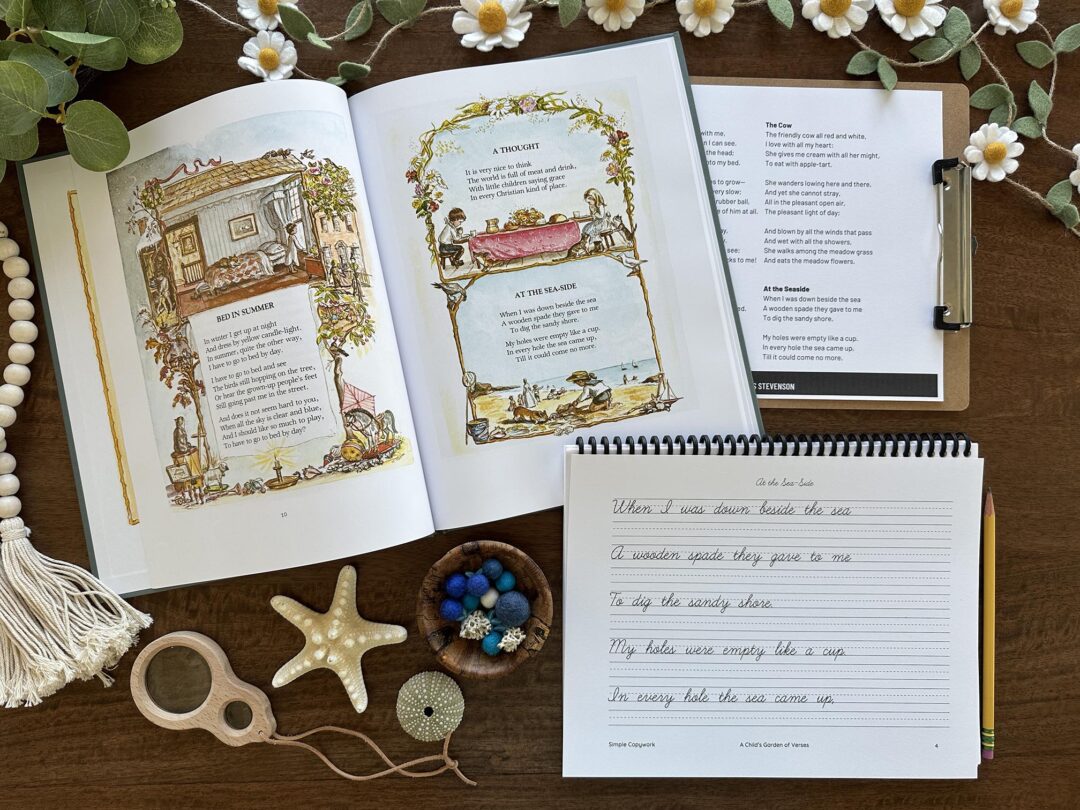 BED IN SUMMER
In winter I get up at night
And dress by yellow candle-light.
In summer, quite the other way,
I have to go to bed by day.
I have to go to bed and see
The birds still hopping on the tree,
Or hear the grown-up people's feet
Still going past me in the street.
And does it not seem hard to you,
When all the sky is clear and blue,
And I should like so much to play,
To have to go to bed by day?
10
A THOUGHT
It is very nice to think
The world is full of meat and drink,
With little children saying grace
In every Christian kind of place.
AT THE SEA-SIDE
When I was down beside the sea
A wooden spade they gave to me
To dig the sandy shore.
My holes were empty like a cup.
In every hole the sea came up,
Till it could come no more.
with me.
I can see.
the head;
to my bed.
to grow—
very slow;
rubber ball,
of him at all.
see:
to me!
The Cow
The friendly cow all red and white,
I love with all my heart:
She gives me cream with all her might,
To eat with apple-tart.
She wanders lowing here and there.
And yet she cannot stray,
All in the pleasant open air.
The pleasant light of day:
And blown by all the winds that pass
And wet with all the showers.
She walks among the meadow grass
And eats the meadow flowers.
At the Seaside
When I was down beside the sea
A wooden spade they gave to me
To dig the sandy shore.
My holes were empty like a cup.
In every hole the sea came up,
Till it could come no more.
STEVENSON
At the Sea-Side
When I was down beside the sea
A wooden spade they gave to me
To dig the sandy shore.
My holes were empty like a cup.
In every hole the sea came up,
Simple Copywork
A Child's Garden of Verses
4